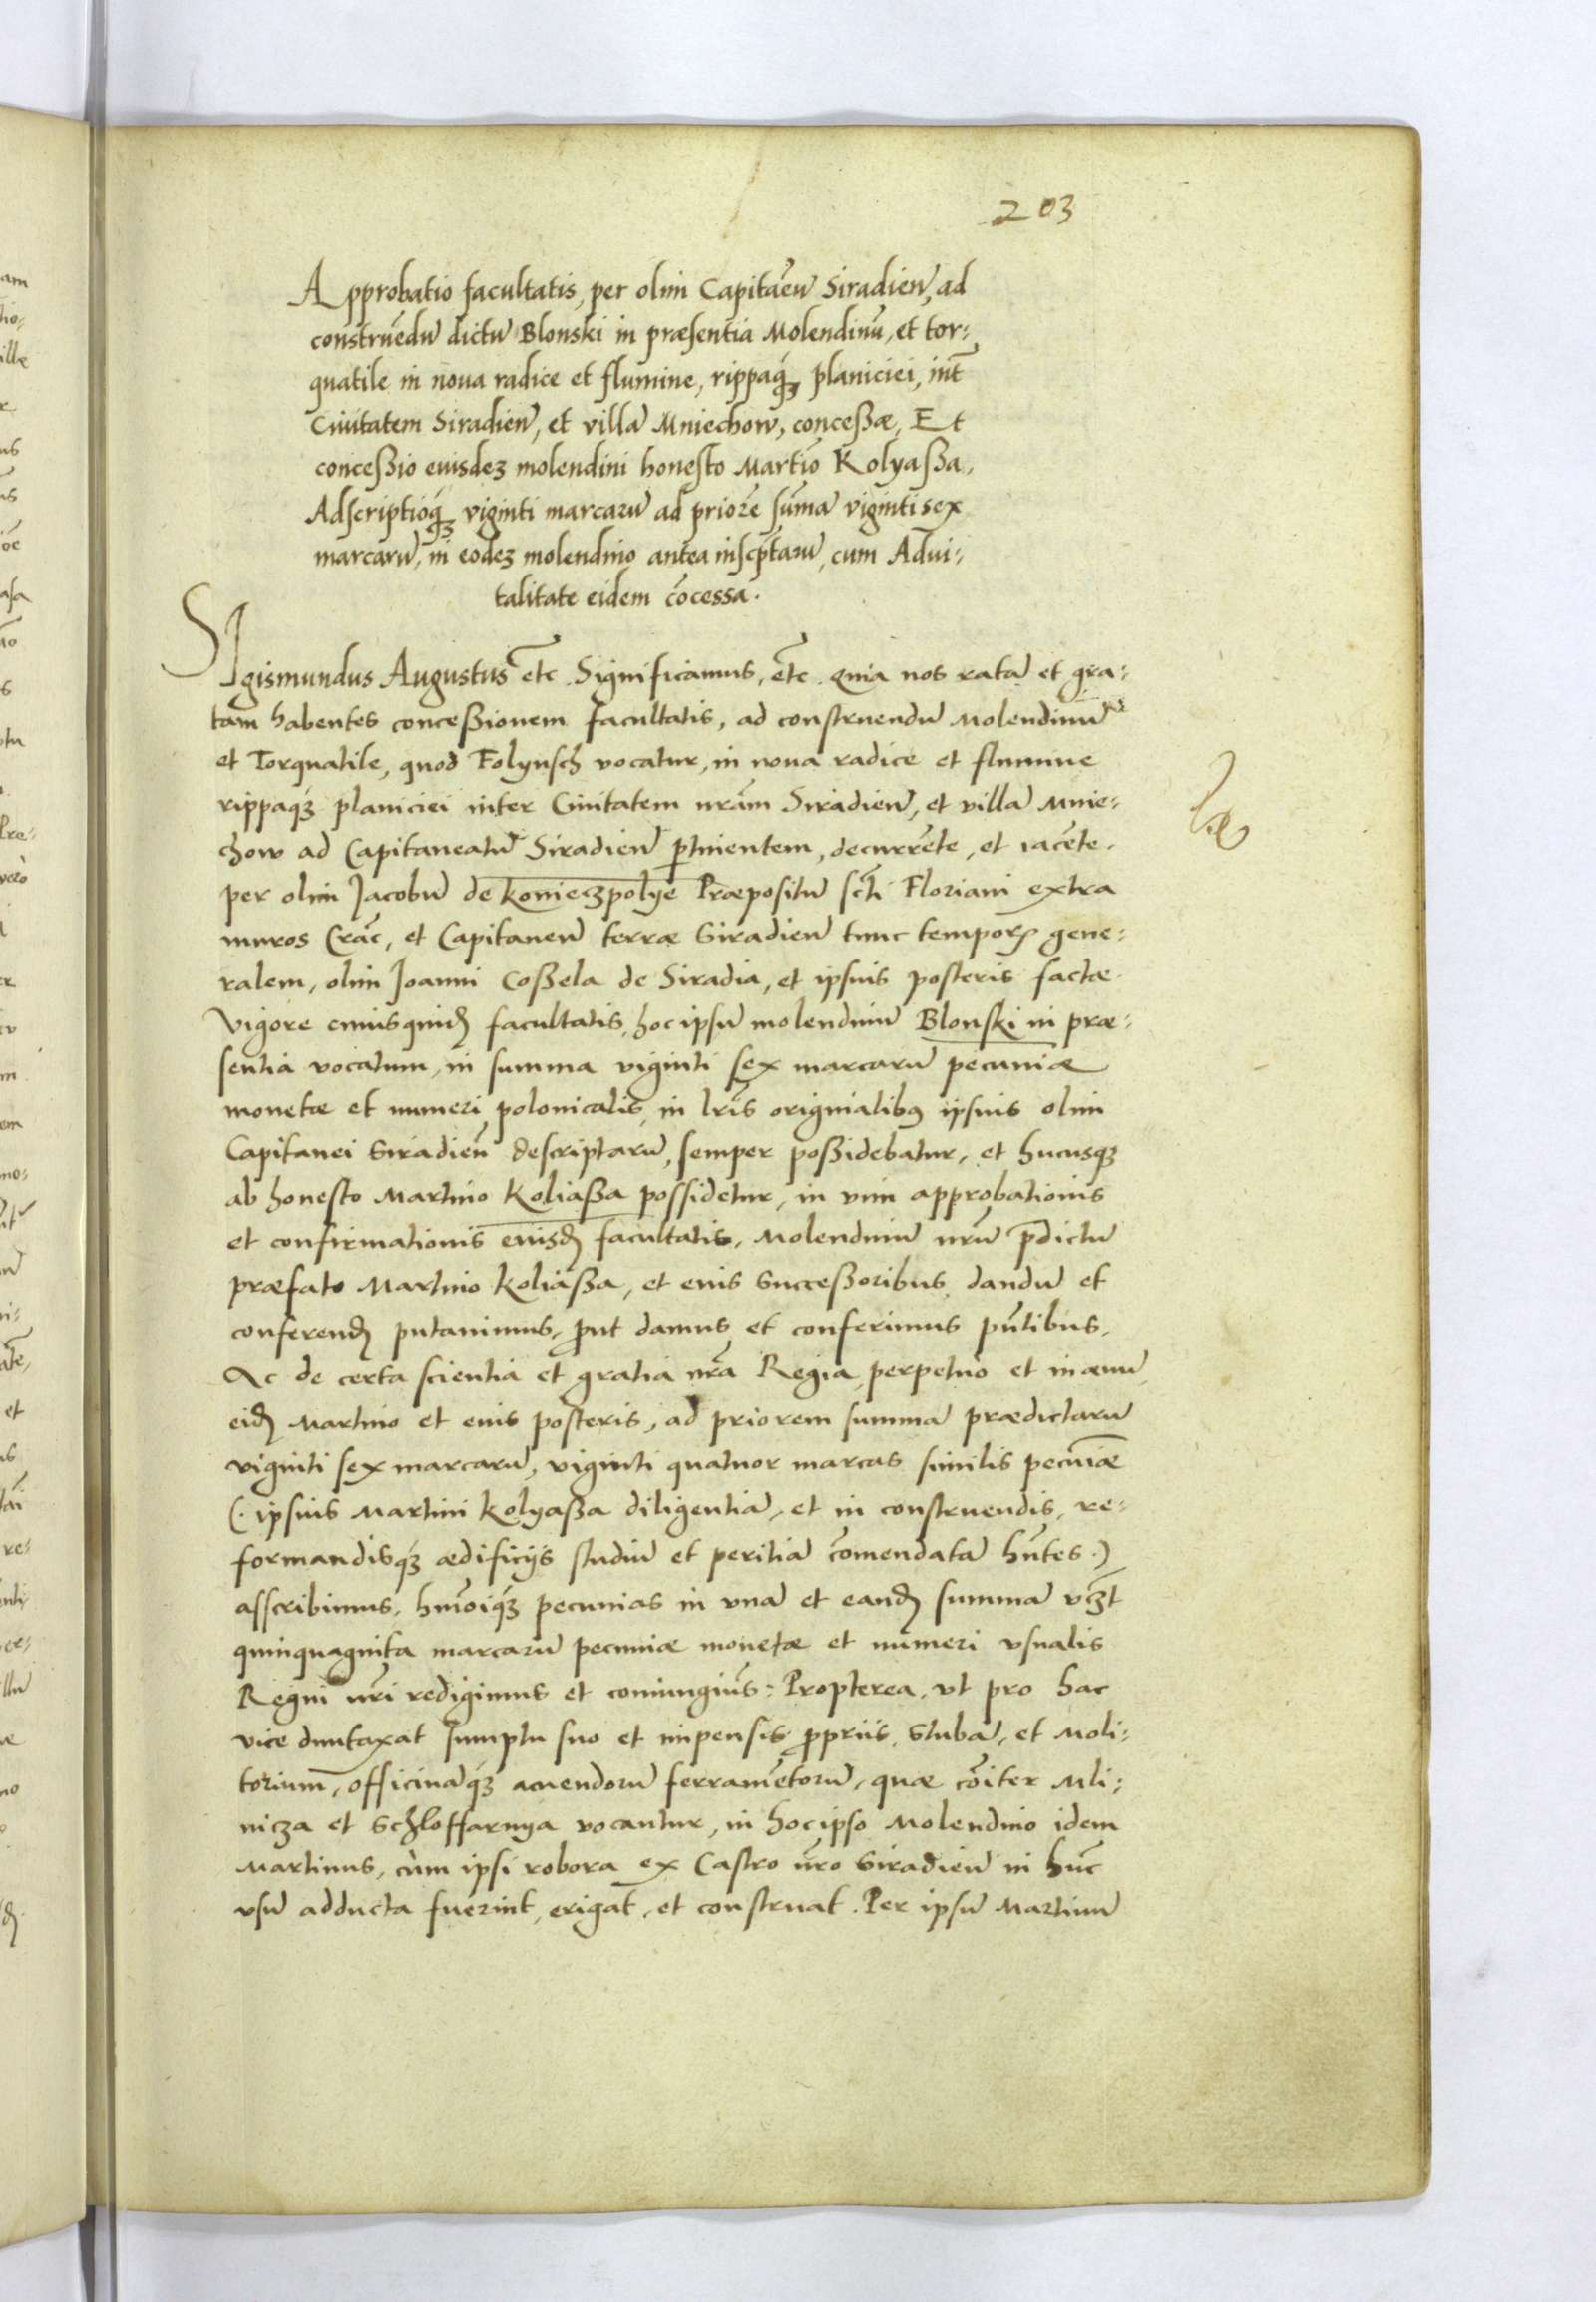 203
Approbatio facultatis, per olim Capitãeũ Siradieñ, ad
construẽdũ dictũ Blonski in præsentia Molendinũ, et tor:
quatile in noua radice et flumine, rippaqꝫ planiciei, int̃
Ciuitatem Siradieñ, et villã Mniechow, conceßæ, Et
conceßio euisdeꝫ molendini honesto Martĩo Kolyaßa,
Adscriptioqꝫ viginti marcarũ ad priorẽ sũmã viginti sex
marcarũ, in eodeꝫ molendino antea inscp̃tarũ, cum Adui:
talitate eidem cõcessa.
SIgismundus Augustus etc̃ Significamus, etc̃. Quia nos ratã et gra:
tam habentes conceßionem facultatis, ad construendũ Molendinũ
et Torquatile, quod Folynsch vocatur, in noua radice et flumine
rippaqꝫ planiciei inter Ciuitatem nrãm Siradieñ, et villã Mnie:
chow ad Capitaneatũ Siradieñ ꝑtinientem, decurrẽte, et iacẽte.
per olim Jacobũ de Konieczpolye Præpositũ sc̃ti Floriani extra
muros Crac̃, et Capitaneũ terræ Siradieñ tunc temporꝭ gene:
ralem, olim Joanni Coßela de Siradia, et ipsius posteris factæ.
Vigore cuiusquidꝫ facultatis, hoc ipsũ molendinũ Blonski in præ:
sentia vocatum, in summa viginti sex marcarũ pecuniæ
monetæ et numeri polonicalis, in lr̃is originalibꝰ ipsius olim
Capitanei Siradieñ descriptarũ, semper poßidebatur, et hucusqꝫ
ab honesto Martino Koliaßa possidetur, in vim approbationis
et confirmationis euisdꝫ facultatis, Molendinũ nrũm p̃dictũ
præfato Martino Koliaßa, et euis Succeßoribus dandũ et
conferendꝫ putauimus, ꝓut damus et conferimus pñtibus,
Ac de certa scientia et gratia nr̃a Regia perpetuo et in æuũ
eidꝫ Martino et euis posteris, ad priorem summã prædictarũ
viginti sex marcarũ, viginti quatuor marcas similis pecuniæ
(. ipsius Martini Kolyaßa diligentiã, et in construendis, re:
formandisqꝫ ædificijs studiũ et peritiã cõmendatã hñtes .)
asscribimus, hmõiqꝫ pecunias in vnã et eandꝫ summã vcꝫt
quinquaginta marcarũ pecuniæ monetæ et numeri vsualis
Regni nr̃i redigimus et coniungimꝰ: Propterea, vt pro hac
vice duntaxat sumptu suo et impensis ꝓpriis Stubã, et Moli:
torium, officinãqꝫ acuendorũ ferramẽtorũ, quæ cõiter Mli:
nicza et Schloffarnya vocantur, in hocipso Molendino idem
Martinus, cùm ipsi robora ex Castro nrõ Siradieñ in hũc
vsũ adducta fuerint, erigat, et construat. Per ipsũ Martinũ